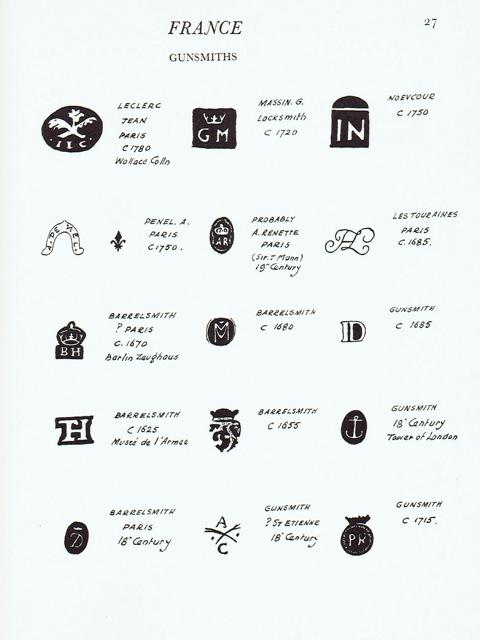 FRANCE
27
GUNSMITHS
I I C
LECLERC
JEAN
PARIS
C 1780
Wallace Colln
G M
MASSIN. G.
Locksmith
C 1720
IN
NOEVCOUR
C 1750
A. PENEL
PENEL. A.
PARIS
C 1750.
AR
PROBABLY
A. RENETTE
PARIS
(Sir. T Mann)
19" Century
LES TOURAINES
PARIS
C. 1685.
BH
BARRELSMITH
? PARIS
C. 1670
Berlin Zeughaus
M
BARRELSMITH
C 1680
D
GUNSMITH
C 1685
H
BARRELSMITH
C 1625
Musée de l'Armee
BARRELSMITH
C 1655
GUNSMITH
18" Century
Tower of London
D
BARRELSMITH
PARIS
18" Century
A
C
GUNSMITH
? ST ETIENNE
18" Century
GUNSMITH
C 1715.